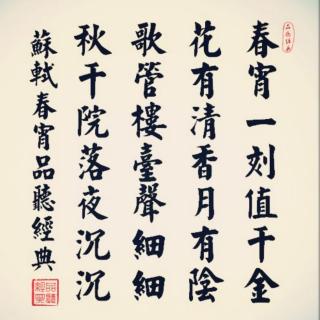 春宵一刻值千金
花有清香月有陰
歌管樓臺聲細細
秋千院落夜沉沉
蘇軾春宵品聽經典
品聽經典